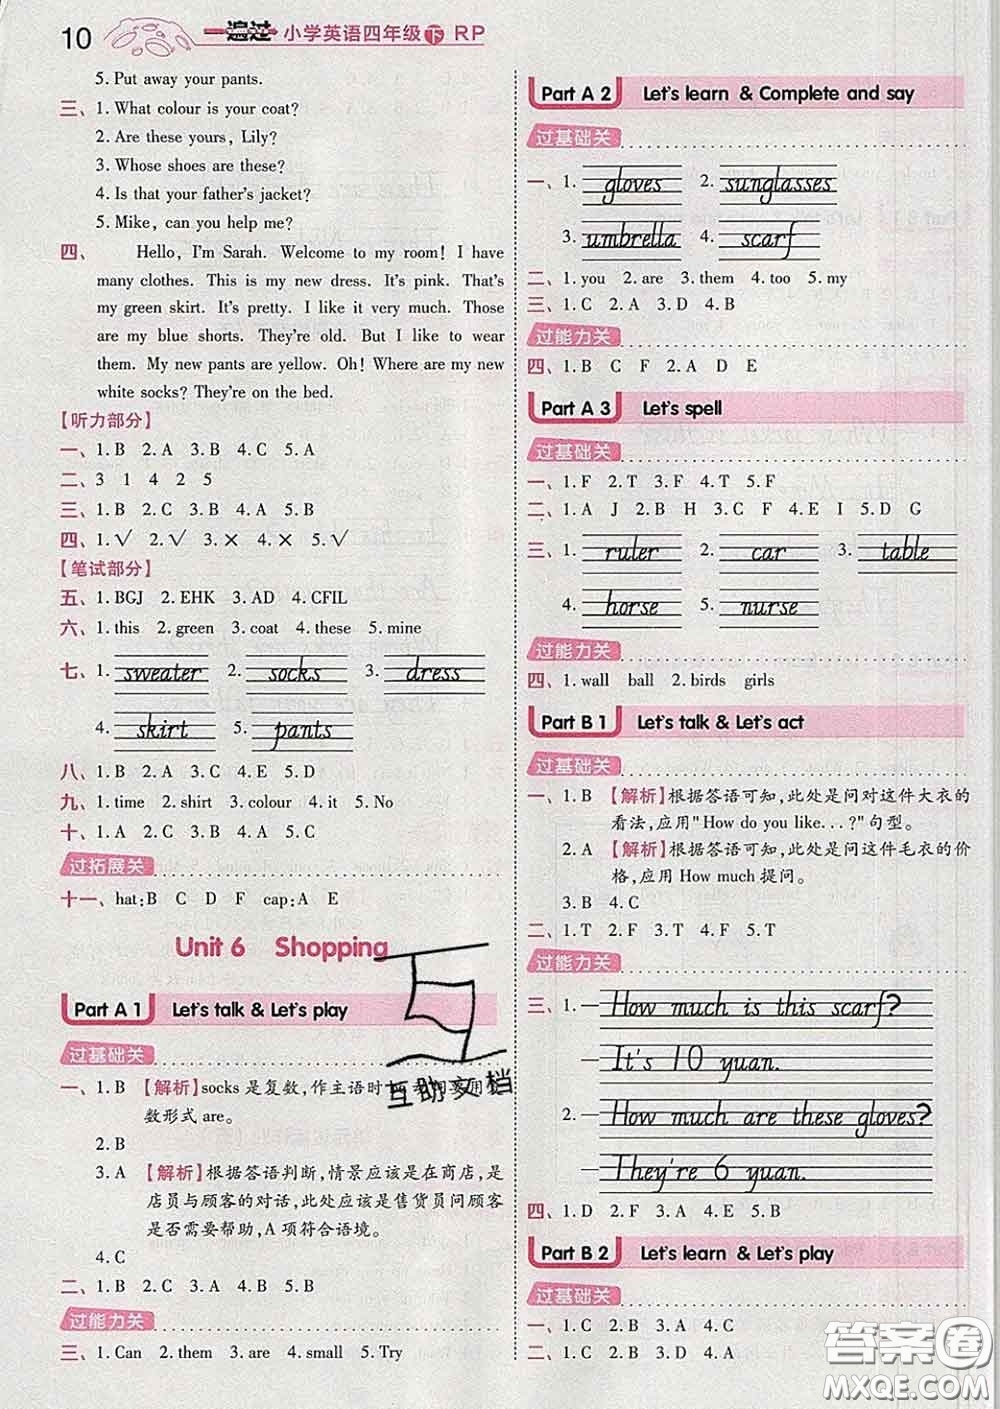 10 一遍过 小学英语四年级下 RP
5. Put away your pants.
三、1. What colour is your coat?
2. Are these yours, Lily?
3. Whose shoes are these?
4. Is that your father's jacket?
5. Mike, can you help me?
四、 Hello, I'm Sarah. Welcome to my room! I have
many clothes. This is my new dress. It's pink. That's
my green skirt. It's pretty. I like it very much. Those
are my blue shorts. They're old. But I like to wear
them. My new pants are yellow. Oh! Where are my new
white socks? They're on the bed.
【听力部分】
一、1. B 2. A 3. B 4. C 5. A
二、3 1 4 2 5
三、1. B 2. C 3. B 4. A 5. B
四、1. ✓ 2. ✓ 3. × 4. × 5. ✓
【笔试部分】
五、1. BGJ 2. EHK 3. AD 4. CFIL
六、1. this 2. green 3. coat 4. these 5. mine
七、1. sweater 2. socks 3. dress
4. skirt 5. pants
八、1. B 2. A 3. C 4. E 5. D
九、1. time 2. shirt 3. colour 4. it 5. No
十、1. A 2. C 3. B 4. A 5. C
过拓展关
十一、hat: B C D F cap: A E
Unit 6 Shopping
Part A 1 Let's talk & Let's play
过基础关
一、1. B 【解析】socks 是复数,作主语时
数形式 are。
2. B
3. A 【解析】根据答语判断,情景应该是在商店,是
店员与顾客的对话,此处应该是售货员问顾客
是否需要帮助,A 项符合语境。
4. C
二、1. B 2. B 3. C 4. A 5. C
过能力关
三、1. Can 2. them 3. are 4. small 5. Try
Part A 2 Let's learn & Complete and say
过基础关
一、1. gloves 2. sunglasses
3. umbrella 4. scarf
二、1. you 2. are 3. them 4. too 5. my
三、1. C 2. A 3. D 4. B
过能力关
四、1. B C F 2. A D E
Part A 3 Let's spell
过基础关
一、1. F 2. T 3. F 4. T 5. F
二、1. A J 2. B H 3. C F 4. E I 5. D G
三、1. ruler 2. car 3. table
4. horse 5. nurse
过能力关
四、1. wall ball 2. birds girls
Part B 1 Let's talk & Let's act
过基础关
一、1. B 【解析】根据答语可知,此处是问对这件大衣的
看法,应用"How do you like...?"句型。
2. A 【解析】根据答语可知,此处是问这件毛衣的价
格,应用 How much 提问。
3. B 4. C
二、1. T 2. F 3. T 4. F 5. T
过能力关
三、1. —How much is this scarf?
—It's 10 yuan.
2. —How much are these gloves?
—They're 6 yuan.
四、1. D 2. F 3. A 4. E 5. B
Part B 2 Let's learn & Let's play
过基础关
一、1. C 2. B 3. A 4. C
二、1. C 2. B 3. A 4. E 5. D
互助文档
答案圈
MXQE.COM